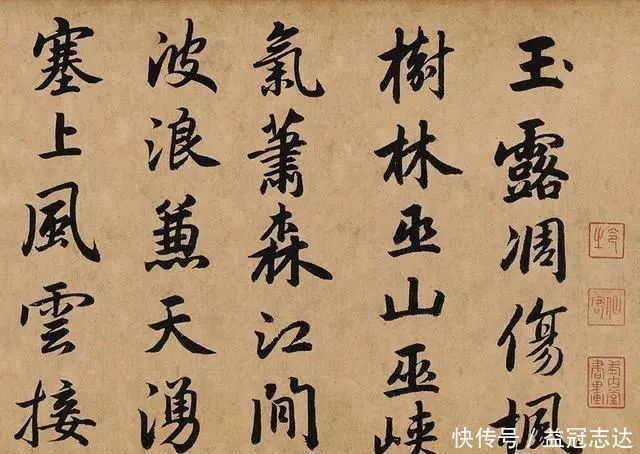 玉露凋傷楓
樹林巫山巫峽
氣蕭森江間
波浪兼天湧
塞上風雲接
快传号／益冠志达